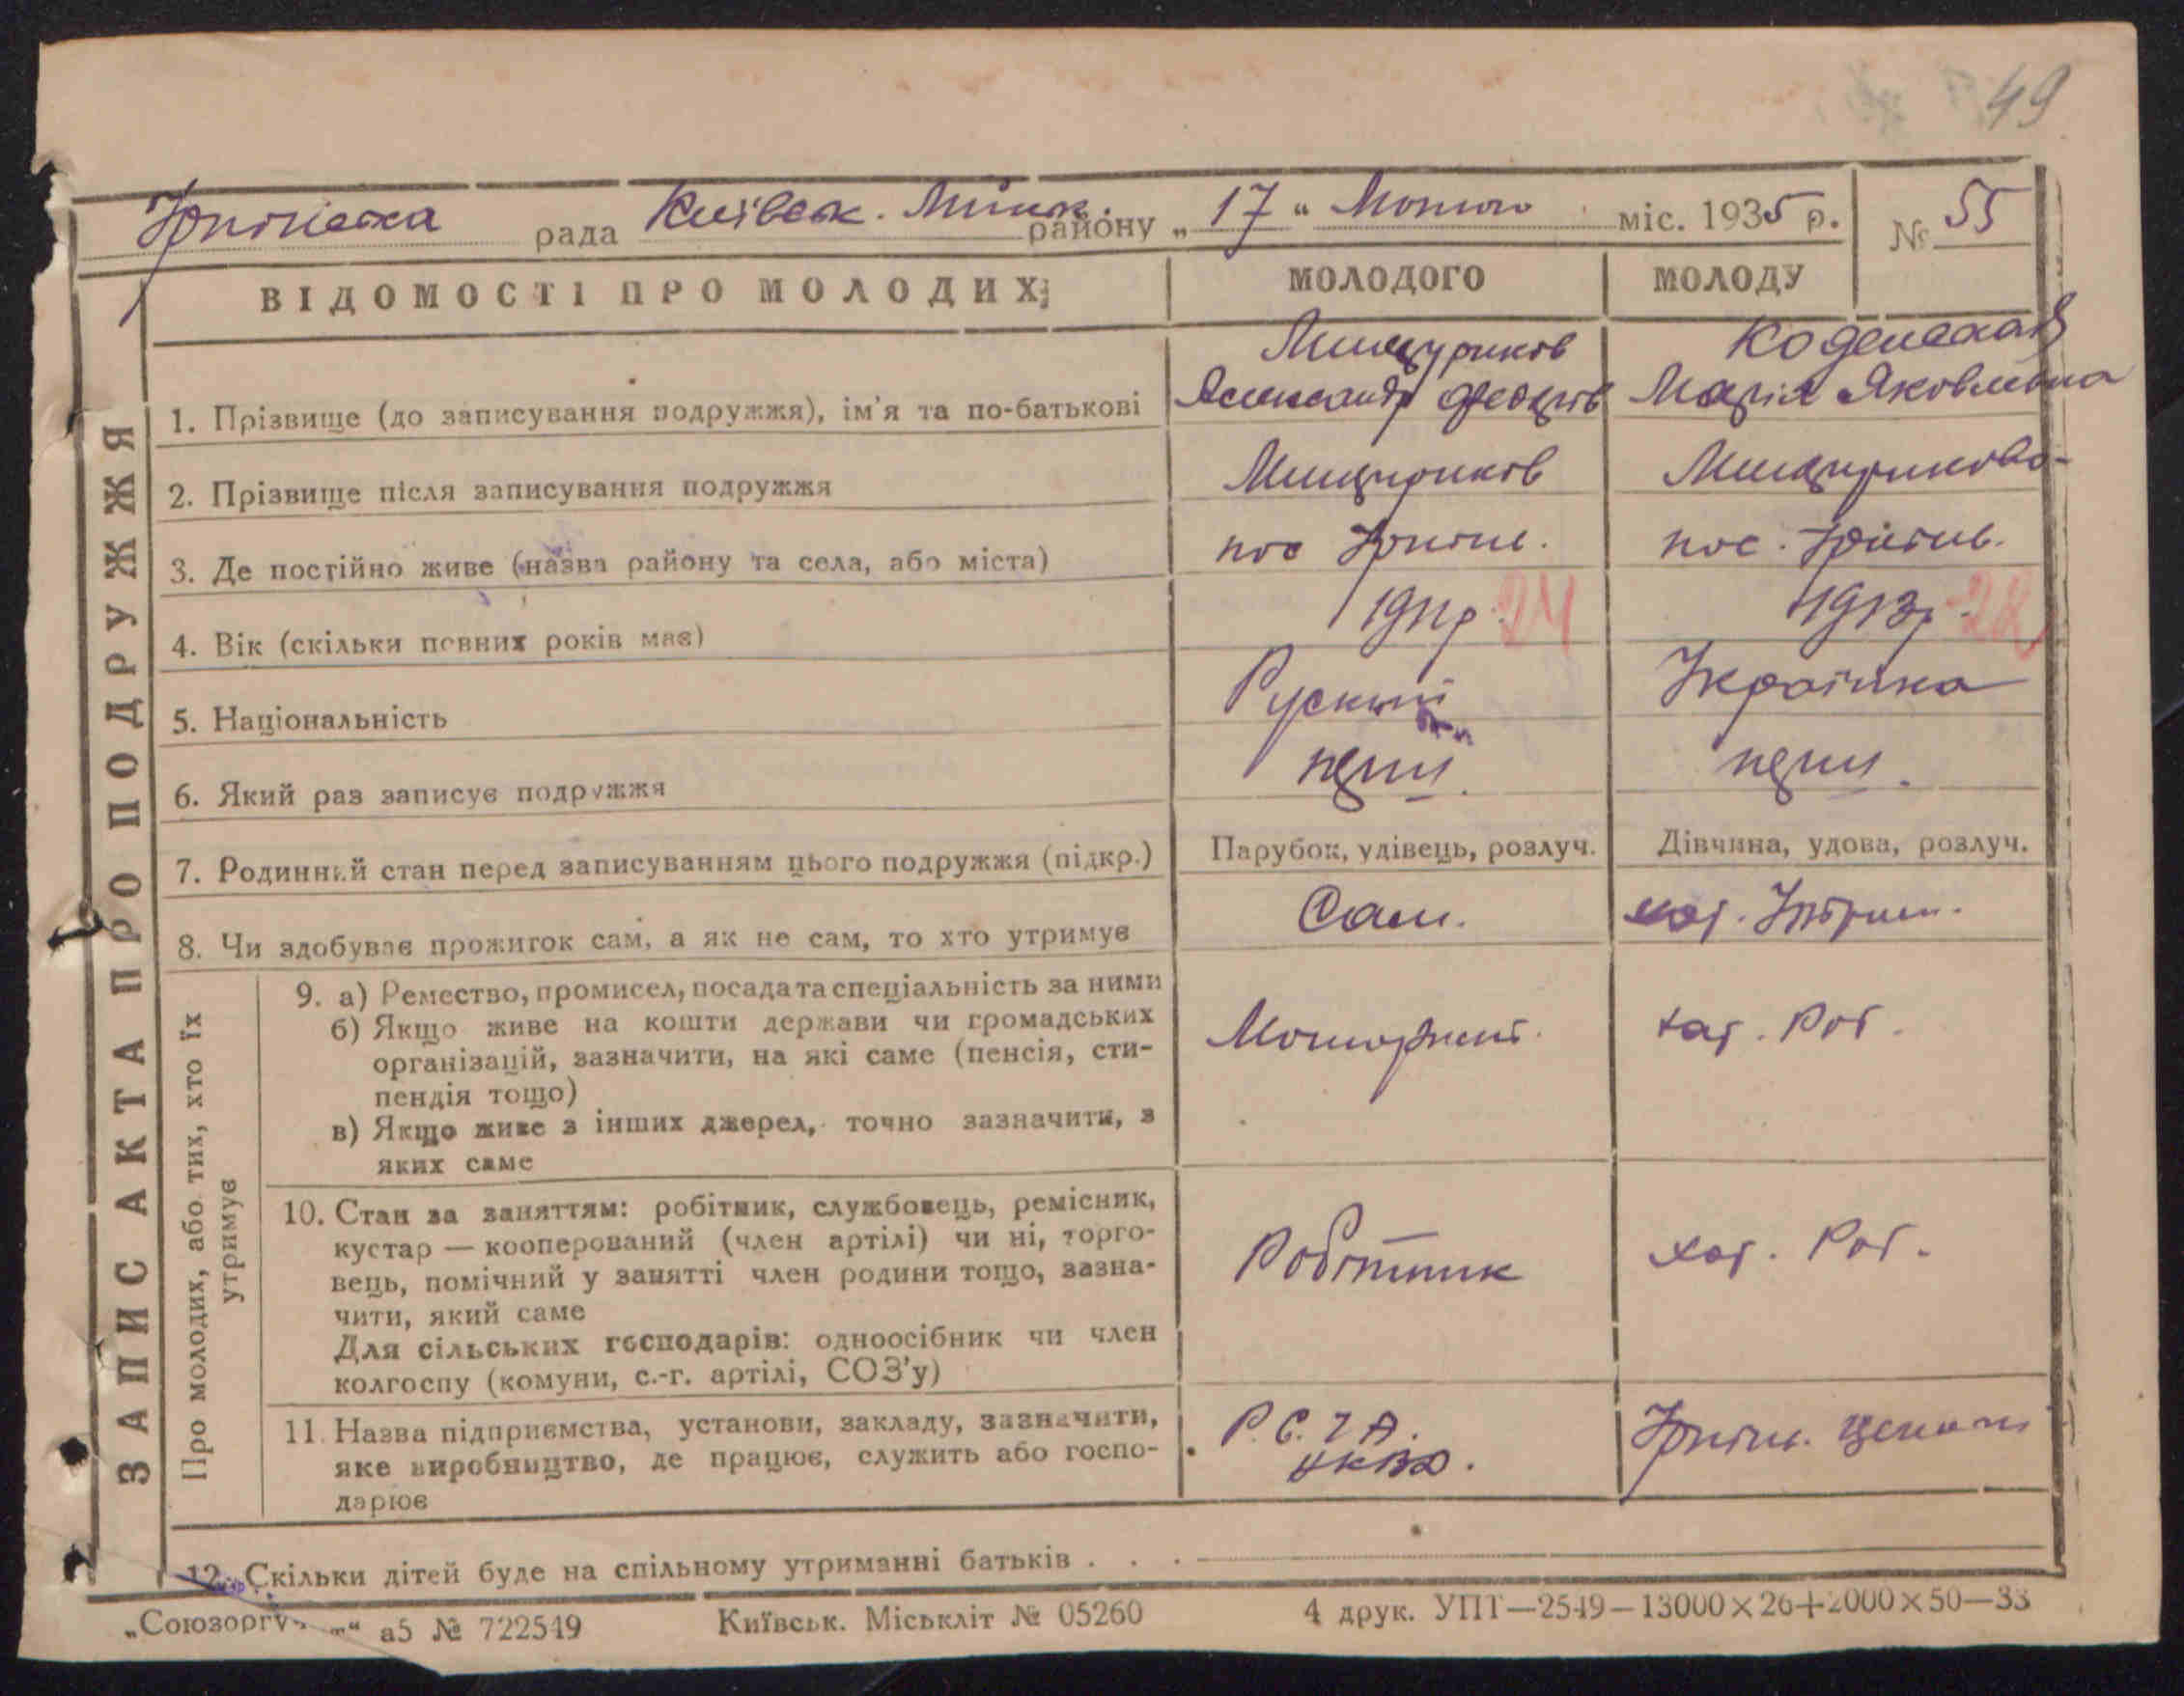 49
Ірпінська рада Київськ. Міськ. району „ 17 “ Лютого міс. 1935 р. № 55
ВІДОМОСТІ ПРО МОЛОДИХ МОЛОДОГО МОЛОДУ
ЗАПИС АКТА ПРО ПОДРУЖЖЯ
1. Прізвище (до записування подружжя), ім'я та по-батькові Мищуриков Марія Яковлівна
2. Прізвище після записування подружжя Мищуриков Мищурикова
3. Де постійно живе (назва району та села, або міста) пос Ірпінь. пос. Ірпінь.
4. Вік (скільки повних років має) 1911р. 24 1913р.
5. Національність Руский Українка
6. Який раз записує подружжя перш. перш.
7. Родинний стан перед записуванням цього подружжя (підкр.) Парубок, удівець, розлуч. Дівчина, удова, розлуч.
8. Чи здобуває прожиток сам, а як не сам, то хто утримує Сам.
Про молодих, або тих, хто їх
утримує
9. а) Ремество, промисел, посада та спеціальність за ними
б) Якщо живе на кошти держави чи громадських
організацій, зазначити, на які саме (пенсія, сти-
пендія тощо)
в) Якщо живе з інших джерел, точно зазначити, з
яких саме
хат. Роб.
10. Стан за заняттям: робітник, службовець, ремісник,
кустар — кооперований (член артілі) чи ні, торго-
вець, помічний у занятті член родини тощо, зазна-
чити, який саме
Для сільських господарів: одноосібник чи член
колгоспу (комуни, с.-г. артілі, СОЗ'у)
Робітник хат. Роб.
11. Назва підприємства, установи, закладу, зазначити,
яке виробництво, де працює, служить або госпо-
дарює
Ірпінь.
12. Скільки дітей буде на спільному утриманні батьків . . .
а5 № 722549 Київськ. Міськліт № 05260 4 друк. УПТ—2549—13000×26+2000×50—33